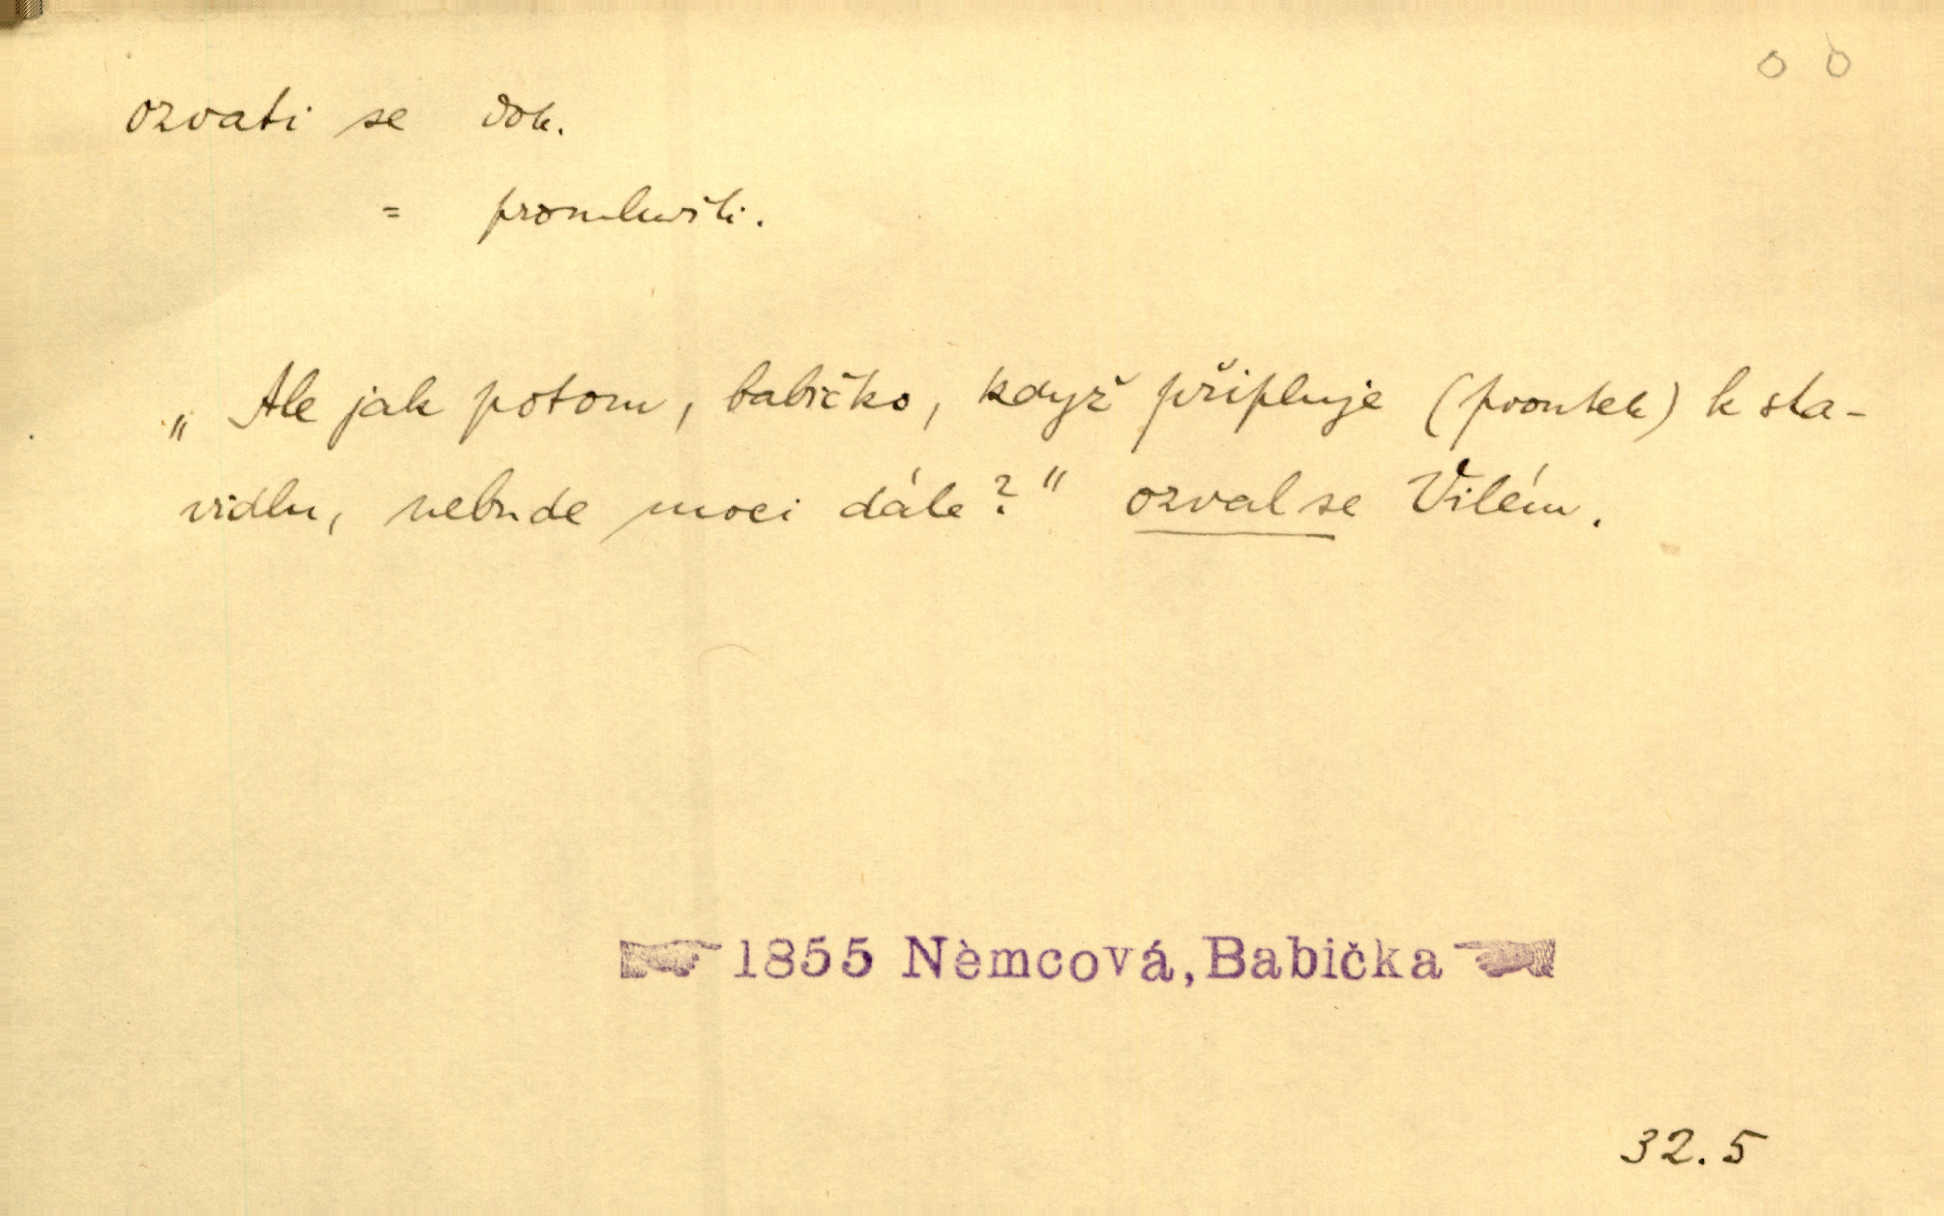 o o
ozvati se dok.
= promluviti.
„Ale jak potom, babičko, když připluje (proutek) k sta-
vidlu, nebude moci dále?" ozval se Vilém.
1855 Němcová, Babička
32.5